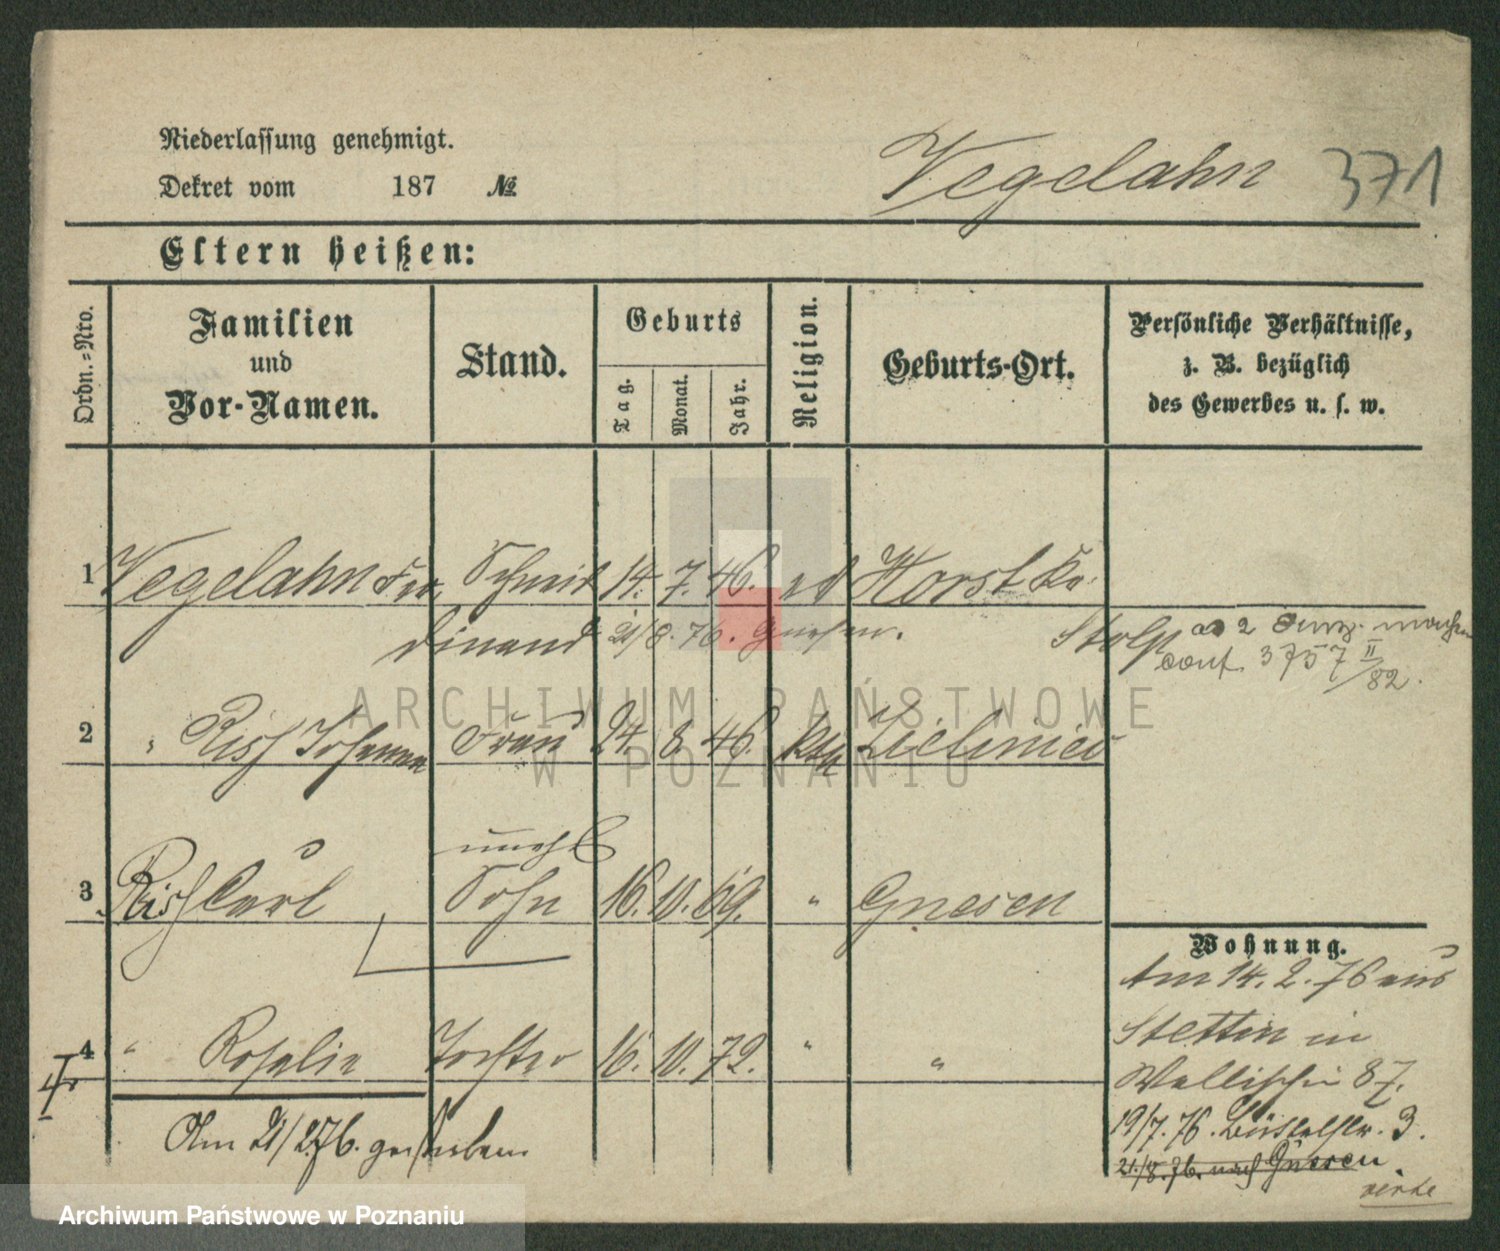 Niederlassung genehmigt.
Dekret vom 187 №
Vegelahn 371
Eltern heißen:
Ordn.=Nro.
Familien
und
Vor-Namen.
Stand.
Geburts
Tag.
Monat.
Jahr.
Religion.
Geburts-Ort.
Persönliche Verhältnisse,
z. B. bezüglich
des Gewerbes u. s. w.
1 Vegelahn Fer Schmid 14. 7. 46. Horst Kr.
dinand 21/8. 76. Gnesen. Stolp
conf. 3757 II/82.
2 " Risch Johanna Frau 24. 8. 46. kth Zieliniec
unehl
3 Risch Carl Sohn 16. 10. 69. " Gnesen
4 " Rosalie Tochter 16. 10. 72. " "
Am 21/2 76. gestorben.
Wohnung.
Am 14. 2. 76 aus
Stettin in
Wallischei 87.
19/7. 76. 3.
21/8. 76. nach Gnesen.
ARCHIWUM PAŃSTWOWE
W POZNANIU
Archiwum Państwowe w Poznaniu